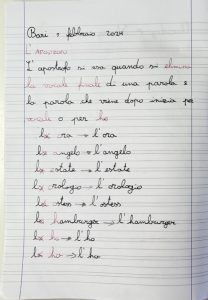 Bari, 9 febbraio 2024
L'APOSTROFO
L'apostrofo si usa quando si elimina
la vocale finale di una parola e
la parola che viene dopo inizia per
vocale o per h
ora → l'ora
angelo → l'angelo
estate → l'estate
orologio → l'orologio
→ l'ostess
hamburger → l'hamburger
ho → l'ho
ha → l'ha